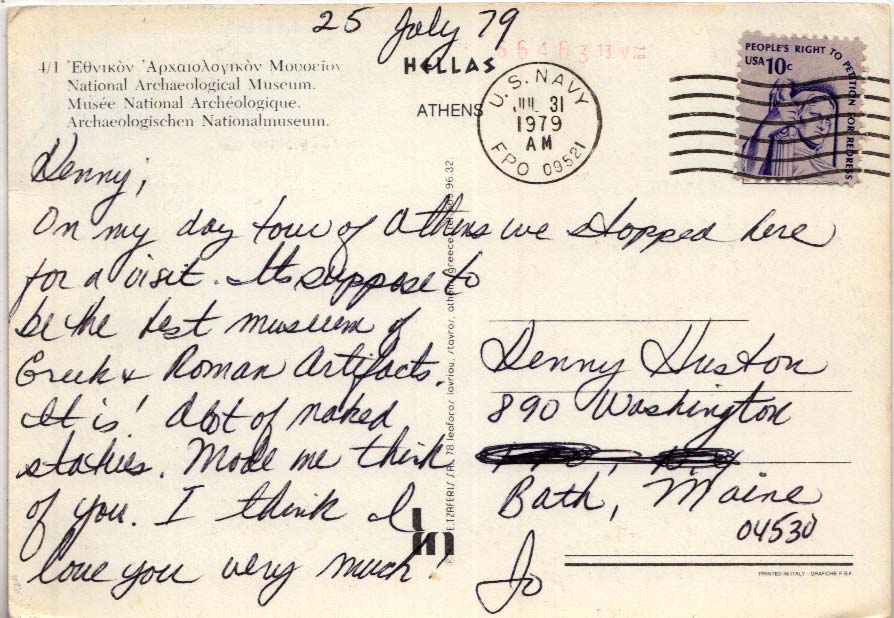 25 July 79
66463 13 IV 81
4/1 Ἐθνικὸν Ἀρχαιολογικὸν Μουσεῖον
National Archaeological Museum.
Musée National Archéologique.
Archaeologischen Nationalmuseum.
HELLAS
ATHENS
U.S. NAVY
JUL 31
1979
AM
FPO 09521
PEOPLE'S RIGHT TO PETITION FOR REDRESS
USA 10c
Denny,
On my day tour of Athens we stopped here
for a visit. Its suppose to
be the best museum of
Greek & Roman Artifacts.
It is! Alot of naked
statues. Made me think
of you. I think I
love you very much!
Jo
Denny Huston
890 Washington
Bath, Maine
04530
E.TZAFERIS S.A. 78 leoforos lavriou, stavros, athens greece 96.32.
PRINTED IN ITALY - GRAFICHE F.G.F.